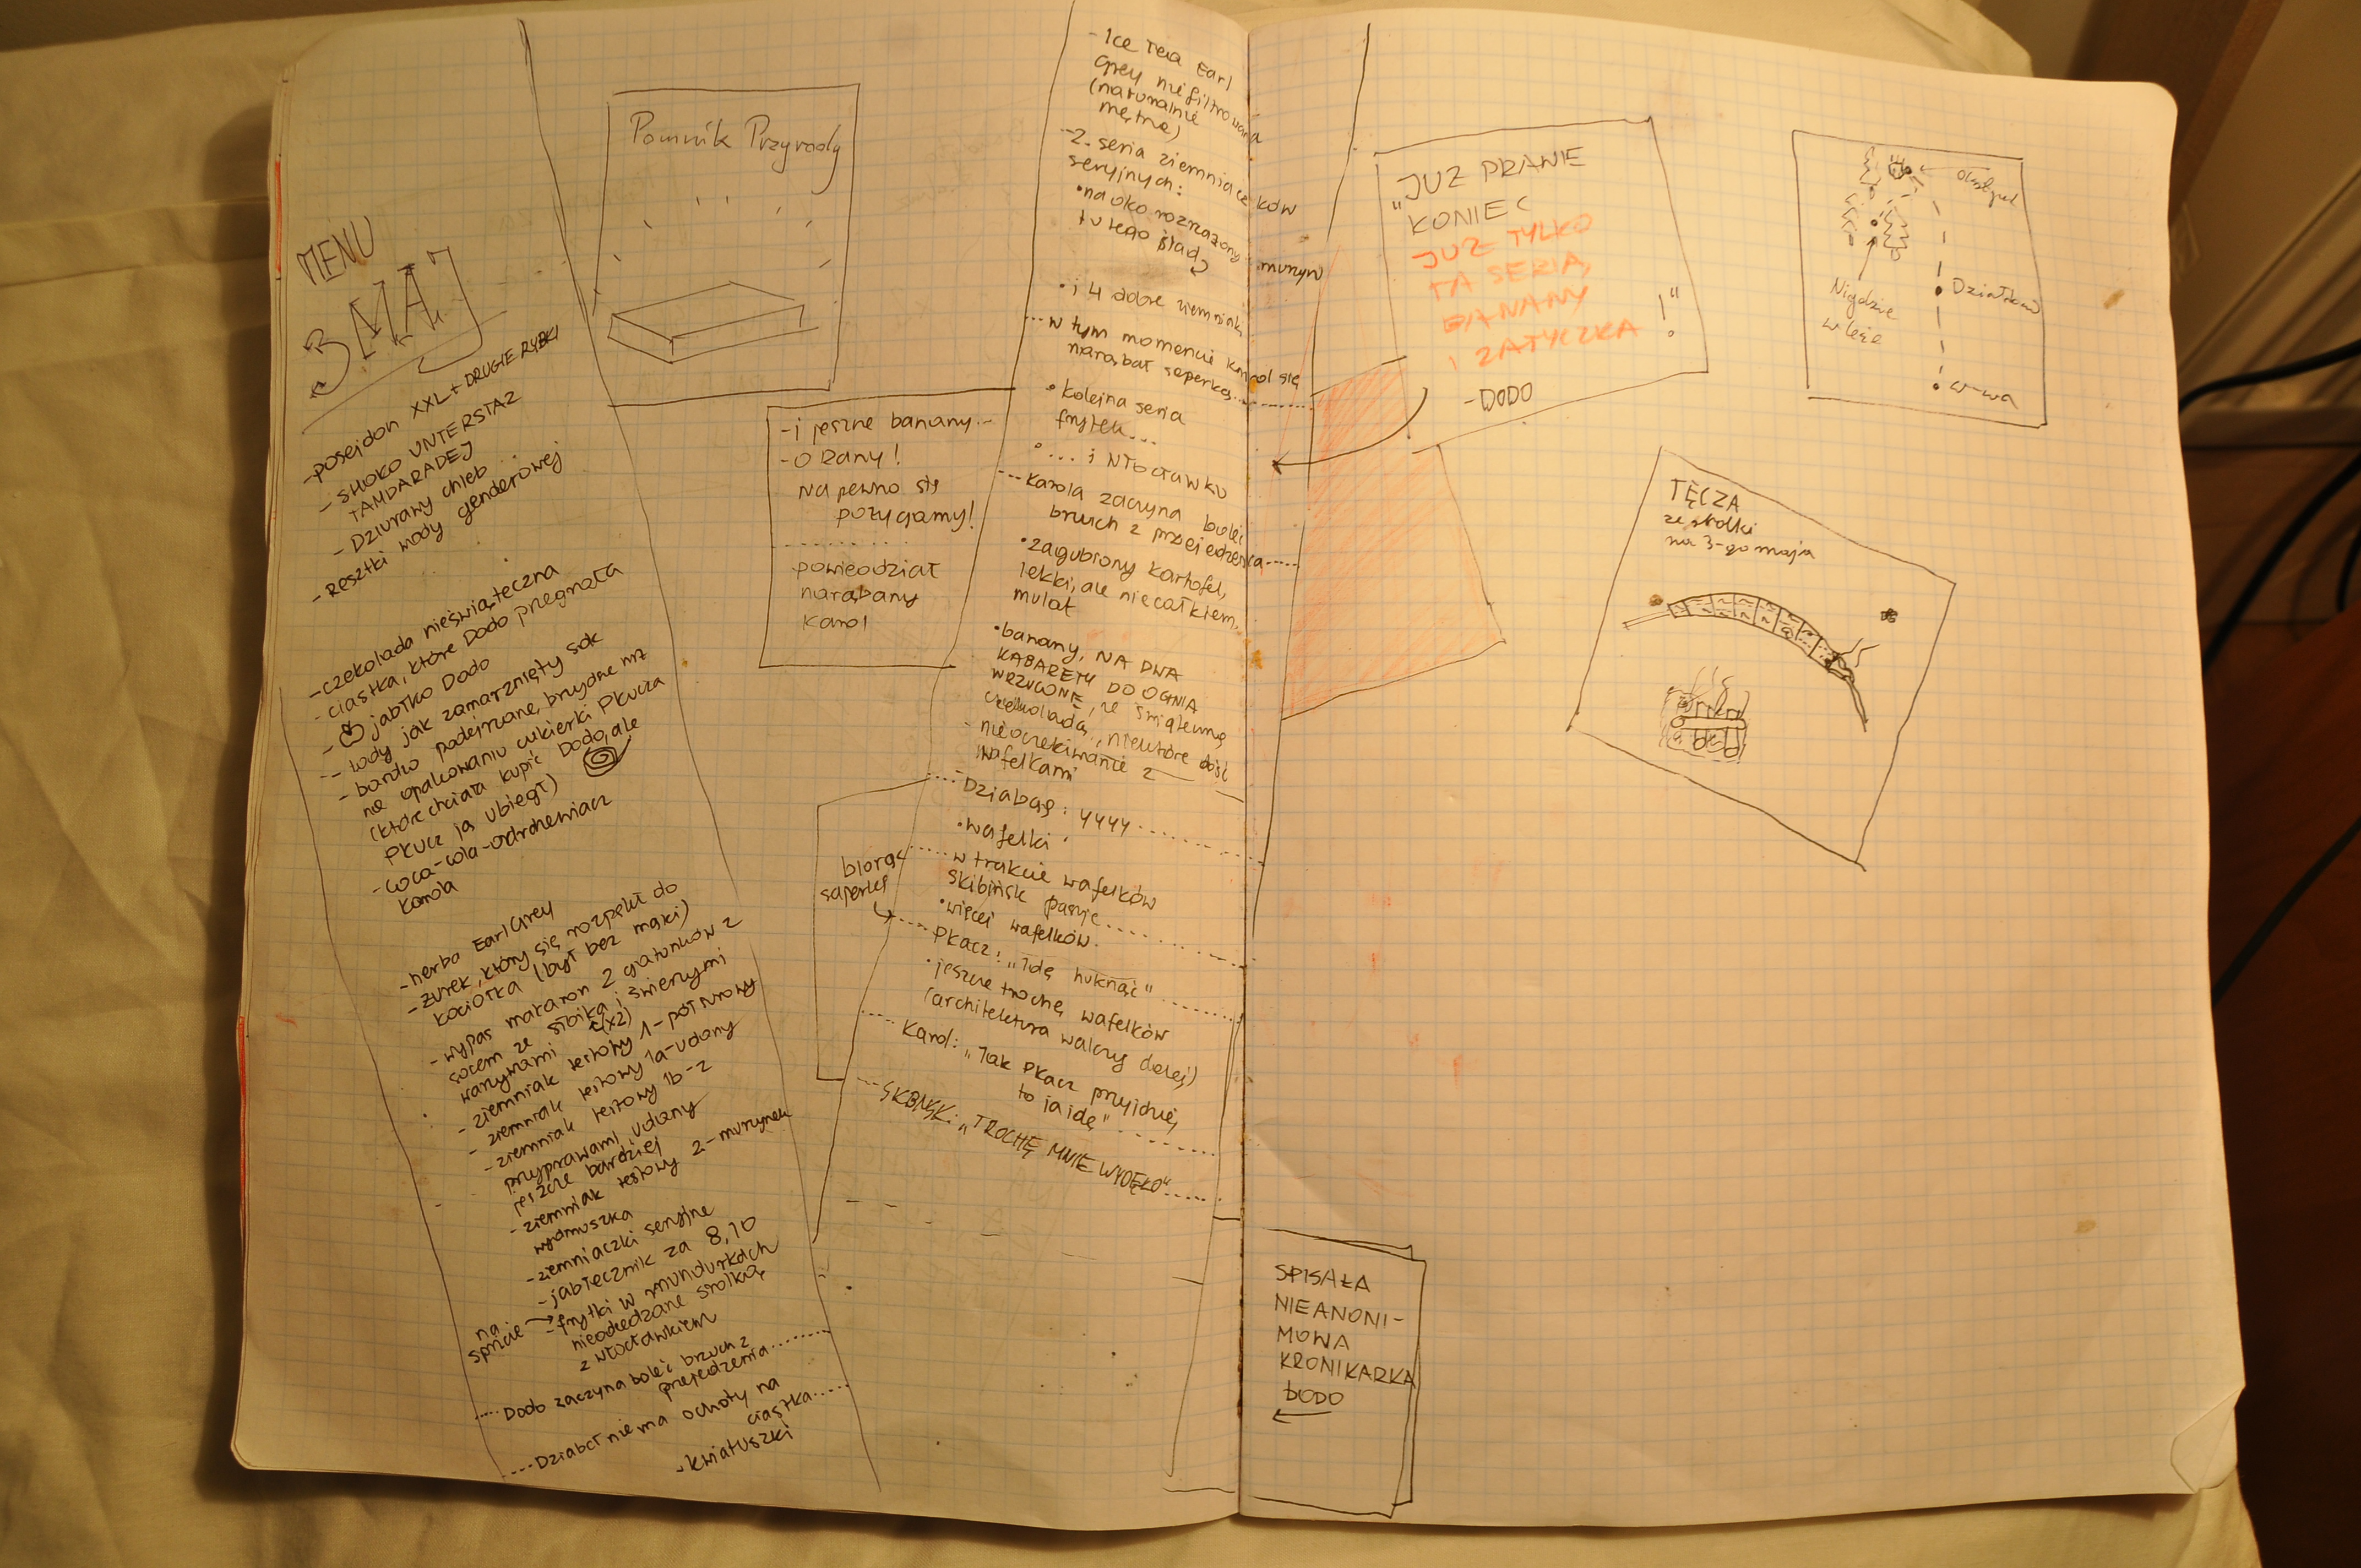 MENU
3 MAJ
- POSEJDON XXL + DRUGIE RYBKI
- SHOKO UNTERSTAZ
TAMDARADEJ
- DZIURAWY chleb
- Resztki wody genderowej
- czekolada nieświąteczna
- ciastka, które Dodo pregnęła
- jabłko Dodo
-- lody jak zamarznięty sok
- bardzo podejrzane, brzydne na
opakowaniu cukierki PKUCZA
(które chciała kupić Dodo, ale
PKUCZ ją ubiegł)
- coca-cola-odrdzewiacz
Karola
- herba Earl Grey
- żurek, który się rozpękł do
kociołka (był bez mąki)
- wypas makaron 2 gatunków z
sosem ze słoika i świeżymi
warzywami (x2)
- ziemniak testowy 1 - półsurowy
- ziemniak testowy 1a - udany
- ziemniak testowy 1b - z
przyprawami, udany
jeszcze bardziej
- ziemniak testowy 2 - murzynek
wydmuszka
- ziemniaczki seryjne
- jabłecznik za 8,10
na spricie → - frytki w mundurkach
nieodiedzane srolką
z włocławkiem
.... Dodo zaczyna boleć brzuch z
przejedzenia........
.... Dziabol nie ma ochoty na
ciastka.....
- kwiatuszki
Pomnik Przyrody
- i jeszcze banany...
- O RANY!
Na pewno się
pożygamy!
..........
powiedział
narąbany
karol
- Ice Tea Earl
Grey niefiltrowana
(naturalnie
mętna)
- 2. seria ziemniaczków
seryjnych:
• na oko rozrażony murzyn
tu jego ślad
• i 4 dobre ziemniaki
... w tym momencie karol się
narąbał saperką............
• kolejna seria
frytek...
• ... i Włocławku
... Karola zaczyna boleć
brzuch z przejedzenia.....
• zagubiony kartofel,
lekki, ale niecałkiem
mulat
• banany, NA DWA
KABARETY DO OGNIA
WRZUCONE, ze świąteczną
czekoladą, niektóre dość
nieoczekiwanie z
wafelkami
.... Dziabąg: yyyy............
• wafelki
.... w trakcie wafelków
Skibińsk pasuje............
• więcej wafelków.
biorąc
saperkę
.... PKacz: „Idę huknąć”........
• jeszcze trochę wafelków
(architektura walczy dalej)
.... Karol: „Jak PKacz przyjdzie,
to ja idę”........
... SKBIŃSK: „TROCHĘ MNIE WYDĘŁO”.....
"JUŻ PRAWIE
KONIEC
JUŻ TYLKO
TA SERIA,
BANANY
I ZATYCZKA !"
- DODO
Nigdzie
w lesie
Działdowo
W-wa
TĘCZA
ze srolki
na 3-go maja
SPISAŁA
NIEANONI-
MOWA
KRONIKARKA
DODO